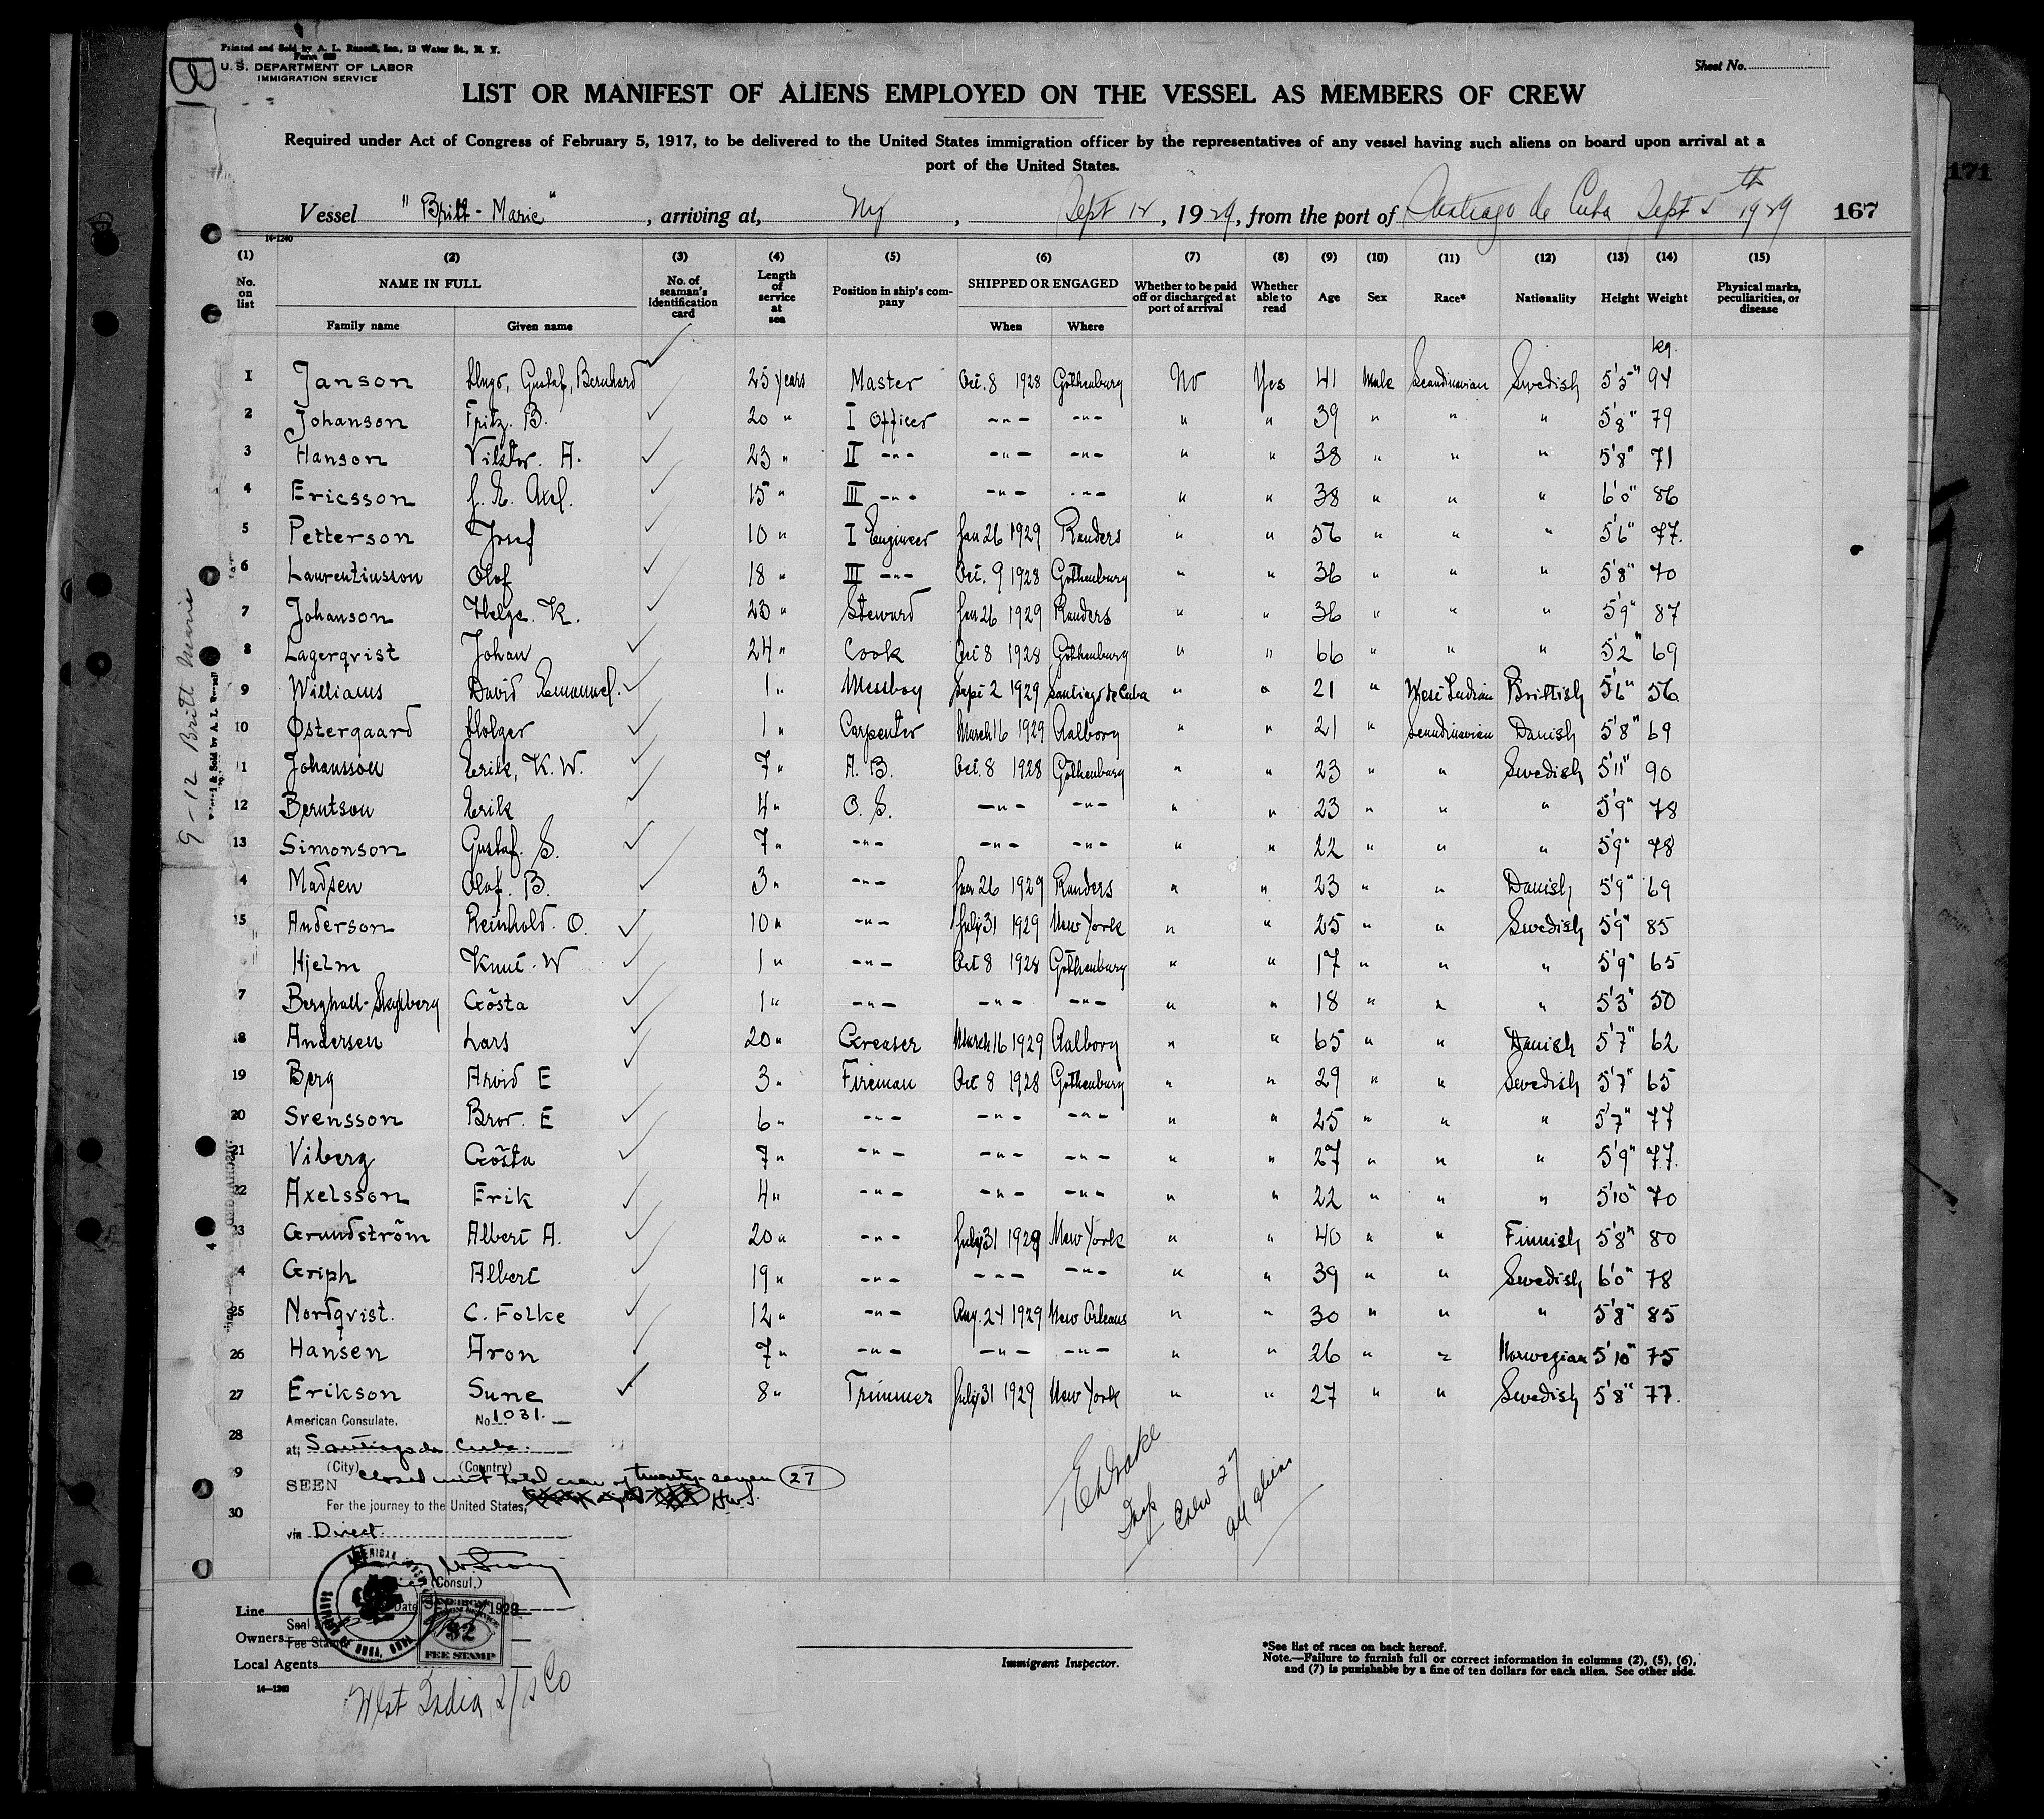 Printed and Sold by A. L. Russell, Inc., 13 Water St., N. Y.
Form 689
U. S. DEPARTMENT OF LABOR
IMMIGRATION SERVICE
Sheet No.
LIST OR MANIFEST OF ALIENS EMPLOYED ON THE VESSEL AS MEMBERS OF CREW
Required under Act of Congress of February 5, 1917, to be delivered to the United States immigration officer by the representatives of any vessel having such aliens on board upon arrival at a
port of the United States.
171
Vessel "Britt-Marie", arriving at, NY, Sept 12, 1929, from the port of Santiago de Cuba Sept 5th 1929 167
14-1240
(1) (2) (3) (4) (5) (6) (7) (8) (9) (10) (11) (12) (13) (14) (15)
No. on list NAME IN FULL No. of seaman's identification card Length of service at sea Position in ship's company SHIPPED OR ENGAGED Whether to be paid off or discharged at port of arrival Whether able to read Age Sex Race* Nationality Height Weight Physical marks, peculiarities, or disease
Family name Given name When Where
kg.
1 Janson Hugo, Gustaf, Bernhard 25 years Master Oct. 8 1928 Gothenburg No Yes 41 Male Scandinavian Swedish 5'5" 94
2 Johanson Fritz. B. 20 " I Officer -"- -"- " " 39 " " " 5'8" 79
3 Hanson Viktor. A. 23 " II -"- -"- -"- " " 38 " " " 5'8" 71
4 Ericsson J. E. Axel. 15 " III -"- -"- -"- " " 38 " " " 6'0" 86
5 Petterson Josef 10 " I Engineer Jan 26 1929 Randers " " 56 " " " 5'6" 77.
6 Laurentiusson Olof 18 " III -"- Oct. 9 1928 Gothenburg " " 36 " " " 5'8" 70
7 Johanson Helge. K. 23 " Steward Jan 26 1929 Randers " " 36 " " " 5'9" 87
8 Lagerqvist Johan 24 " Cook Oct 8 1928 Gothenburg " " 66 " " " 5'2" 69
9 Williams David Emanuel. 1 " Messboy Sept 2 1929 Santiago de Cuba " " 21 " West Indian Brittish 5'6" 56
10 Østergaard Holger 1 " Carpenter March 16 1929 Aalborg " " 21 " Scandinavian Danish 5'8" 69
11 Johansson Erik, K. W. 7 " A. B. Oct. 8 1928 Gothenburg " " 23 " " Swedish 5'11" 90
12 Berntson Erik 4 " O. S. -"- -"- " " 23 " " " 5'9" 78
13 Simonson Gustaf. S. 7 " -"- -"- -"- " " 22 " " " 5'9" 78
14 Madsen Olof. B. 3 " -"- Jan 26 1929 Randers " " 23 " " Danish 5'9" 69
15 Anderson Reinhold. O. 10 " -"- July 31 1929 New York " " 25 " " Swedish 5'9" 85
Hjelm Knut. W 1 " -"- Oct 8 1928 Gothenburg " " 17 " " " 5'9" 65
7 Gösta 1 " -"- -"- -"- " " 18 " " " 5'3" 50
18 Andersen Lars 20 " Greaser March 16 1929 Aalborg " " 65 " " Danish 5'7" 62
19 Berg Arvid E 3 " Fireman Oct 8 1928 Gothenburg " " 29 " " Swedish 5'7" 65
20 Svensson Bror. E 6 " -"- -"- -"- " " 25 " " " 5'7" 77
21 Viberg Gösta 7 " -"- -"- -"- " " 27 " " " 5'9" 77.
22 Axelsson Erik 4 " -"- -"- -"- " " 22 " " " 5'10" 70
23 Grundström Albert A. 20 " -"- July 31 1929 New York " " 40 " " Finnish 5'8" 80
4 Griph Albert 19 " -"- -"- -"- " " 39 " " Swedish 6'0" 78
25 Nordqvist. C. Folke 12 " -"- Aug. 24 1929 New Orleans " " 30 " " " 5'8" 85
26 Hansen Aron 7 " -"- -"- -"- " " 26 " " Norwegian 5'10" 75
27 Erikson Sune 8 " Trimmer July 31 1929 New York " " 27 " " Swedish 5'8" 77.
American Consulate. No. 1031.
28
at; Santiago de Cuba.
(City) (Country)
9 SEEN closed with total crew of twenty-seven 27
For the journey to the United States,
30
via Direct
Crew 27
All aliens
(Consul.)
Date 1929
Line
Seal and
Fee Stamp
Owners
FEE STAMP
$2
Local Agents
14-1240
West India S/S Co
Immigrant Inspector.
*See list of races on back hereof.
Note.—Failure to furnish full or correct information in columns (2), (5), (6),
and (7) is punishable by a fine of ten dollars for each alien. See other side.
9-12 Britt Marie